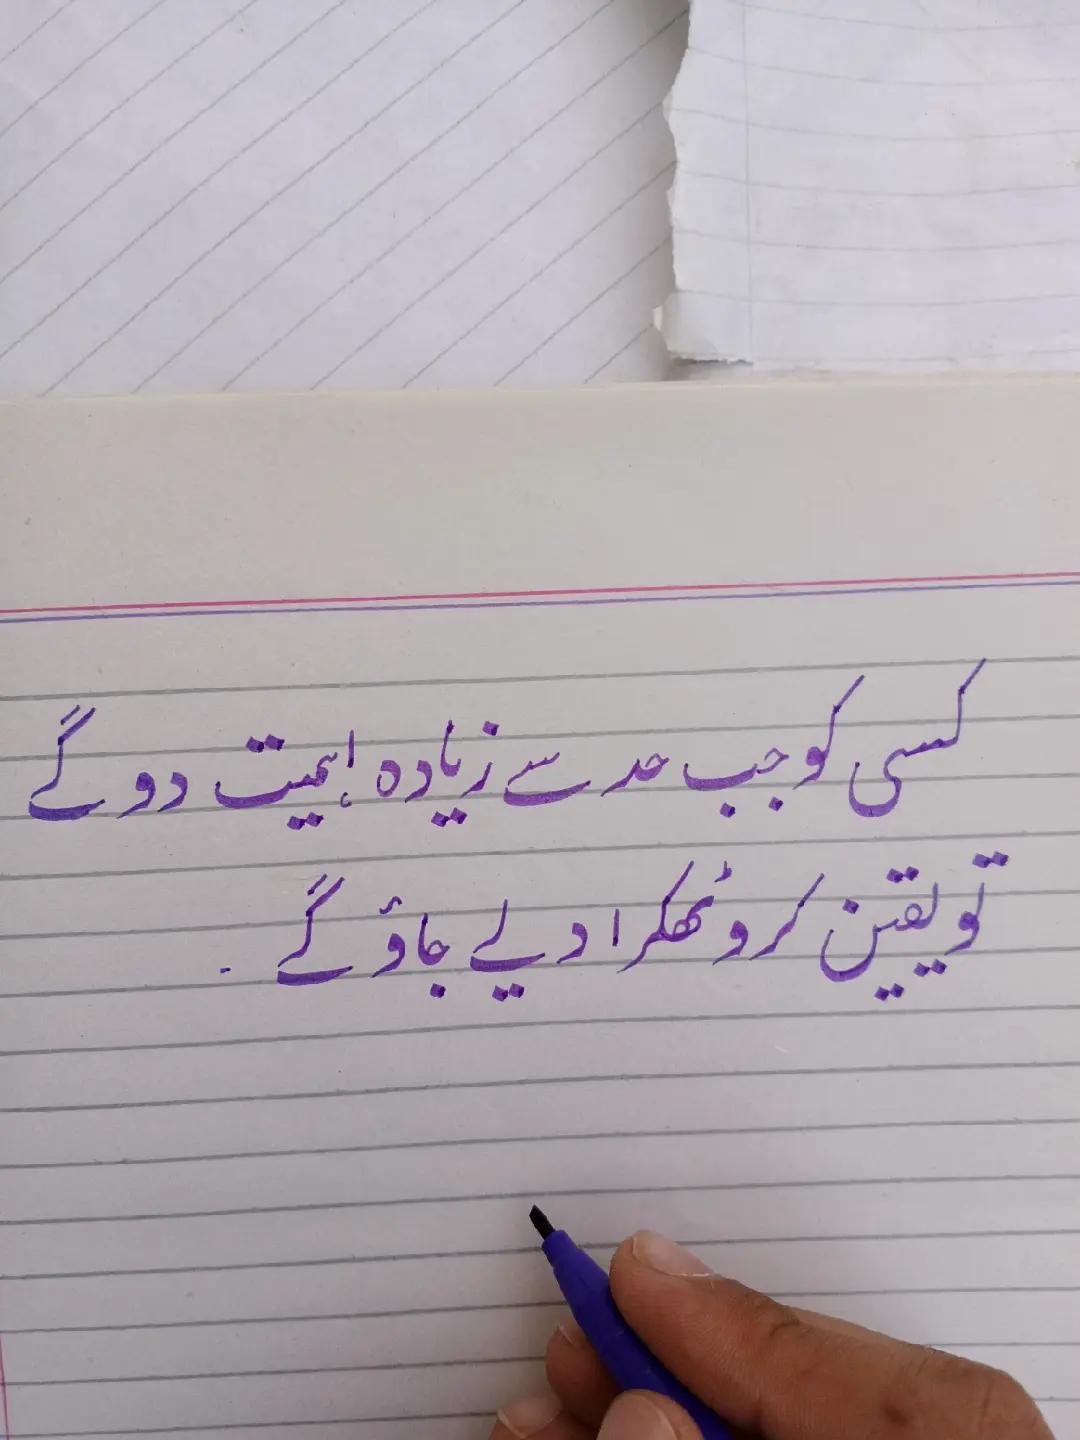 کسی کو جب حد سے زیادہ اہمیت دو گے
تو یقین کرو ٹھکرا دیے جاؤ گے .